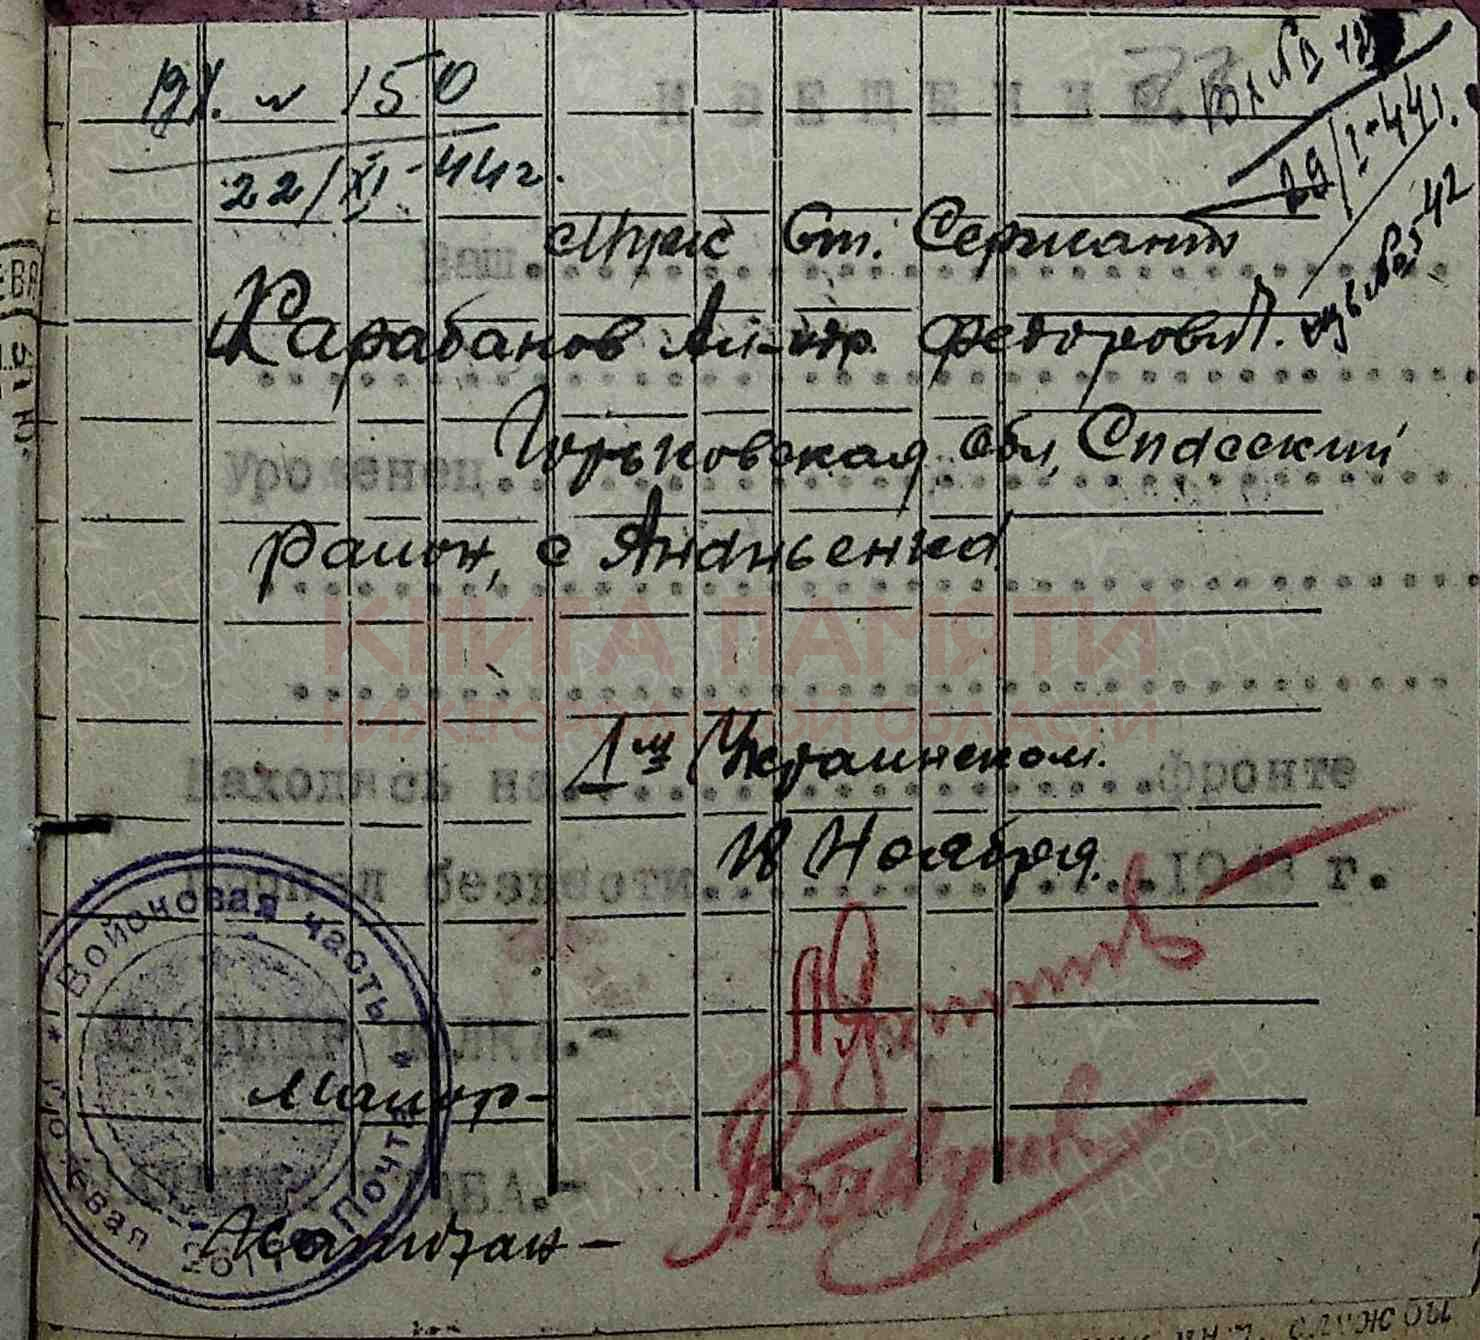 № 150
22/XI-44г.
29/I-44г.
Извещение.
Ваш муж Ст. Сержант
Карабанов Ал-ндр. Федорович.
Уроженец Горьковская обл, Спасский
район, с Ананьенка
КНИГА ПАМЯТИ
НИЖЕГОРОДСКОЙ ОБЛАСТИ
Находясь на 1м Украинском. фронте
Пропал безвести 18 Ноября. 1943 г.
Войсковая часть
Полевая Почта
КОМАНДИР ПОЛКА.-
Майор-
НАЧ. ШТАБА.-
Капитан-